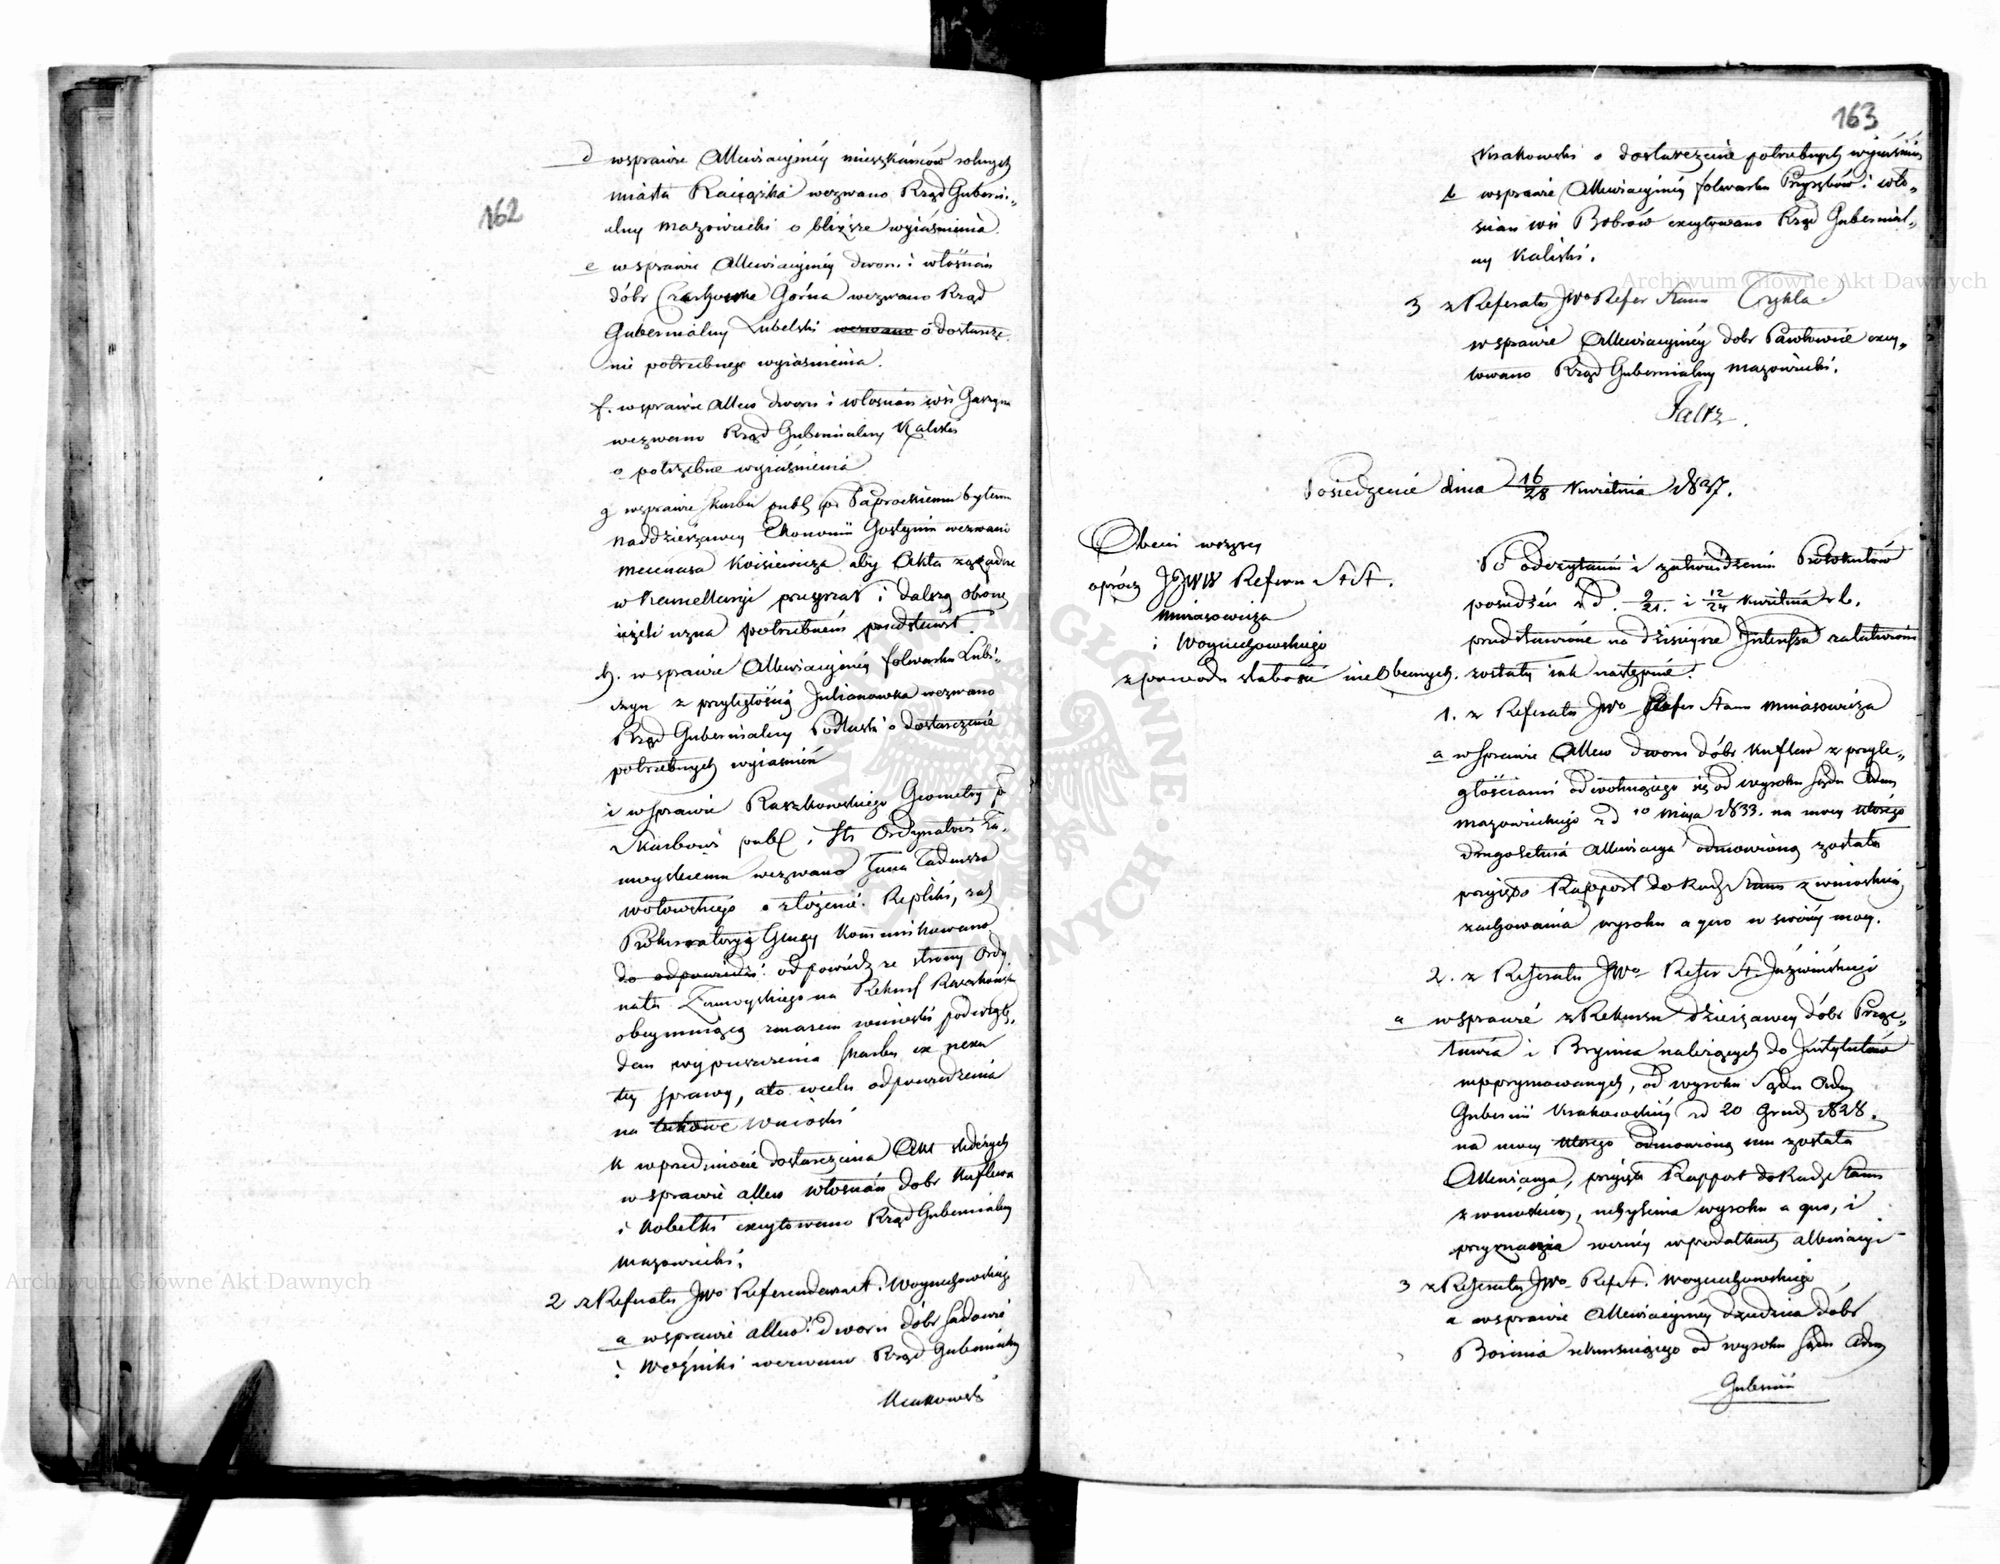 162
d wsprawie Allewiacyinéy mieszkańców rolnych
miasta Raciąża wezwano Rząd Guberni„
alny Mazowiecki o bliższe wyiaśnienia.
e wsprawie Allewiacyinéy dworu i włościan
dóbr Górna wezwano Rząd
Gubernialny Lubelski wezwano o dostarcze„
nie potrzebnego wyiaśnienia.
f. wsprawie Allew dworu i włościan wsi
wezwano Rząd Gubernialny Kaliski
o potrzebne wyiaśnienia
g wsprawie Skarbu publ Paprockiemu byłemu
Naddzierżawcy Ekonomii Gostynin wezwano
Mecenasa aby Akta
w Kancellaryi przeyrzał i dalszą obronę
ieżeli uzna potrzebném przedstawił.
h. wsprawie Allewiacyinéy folwarku Lubi„
czyn z przyległością Julianowka wezwano
Rząd Gubernialny Podlaski o dostarczenie
potrzebnych wyiaśnień
i wsprawie Raszkowskiego Geometry
Skarbowi publ i Ordynatowi Za„
moyskiemu wezwano Pana Tadeusza
Wołowskiego o złożenie Repliki, zaś
Prokuratoryą Genną kommunikowano
do odpowiedzi odpowiedź ze strony Ordy
nata Zamoyskiego na Rekurs
obeymuiącą zarazem wniosek podwzglę„
dem wypuszczenia Skarbu ex nexu
téy sprawy, ato wcelu odpowiedzenia
na takowe wnioski
k wprzedmiocie dostarczenia Akt
w sprawie allew włościan dobr Kuflewa
i Kobelki excytowano Rząd Gubernialny
Mazowiecki.
2 z Referatu JWo Referendarza St. Woyciechowskiego
a wsprawie allew. Dworu dóbr Sadowie
i Woźniki wezwano Rząd Gubernialny
Krakowski
163
Krakowski o dostarczenie potrzebnych wyiaśnień
b wsprawie Allewiacyinéy folwarku i wło„
ścian wsi Bobrów excytowano Rząd Gubernial„
ny Kaliski.
3 z Referatu JWo Refer Stanu
wsprawie Allewiacyinéy dobr Pawłowice excy„
towano Rząd Gubernialny Mazowiecki.
Faltz.
Posiedzenie dnia 16/28 Kwietnia 1837.
Obecni wszyscy
oprócz JJWW Referen St.
Minasowicza
i Woyciechowskiego
z powodu słabości nieobecnych.
Po odczytaniu i zatwierdzeniu Protokułów
posiedzeń z d. 9/21. i 12/24 Kwietnia r. b.
przedstawione na dzisieysze Interessa załatwione
zostały iak następnie.
1. z Referatu JWo Refer Stanu Minasowicza
a w Sprawie Allew dworu dóbr Kuflew z przyle„
głościami odwołuiącego się od wyroku Sądu Adm
Mazowieckiego z d 10 Maja 1833. na mocy którego
długoletnia Allewiacya odmowioną została
przyięto Rapport do Rady Stanu z wnioskiem
zachowania wyroku a quo w swéy mocy.
2. z Referatu JWo Refer St. Jaźwińskiego
a wsprawie z Rekursu dzierżawcy dóbr
i Brynica należących do Instytutów
supprymowanych, od wyroku Sądu Adm
Gubernii Krakowskiéy z d 20 Grud 1828.
na mocy którego odmowioną mu została
Allewiacya, przyięto Rapport do Rady Stanu
z wnioskiem, uchylenia wyroku a quo, i
przyznania wpodatkach allewiacyi
3 z Referatu JWo Ref St. Woyciechowskiego
a wsprawie Allewiacyinéy dziedzica dóbr
rekursuiącego od wyroku Sądu Adm
Gubernii
Archiwum Główne Akt Dawnych
Archiwum Główne Akt Dawnych